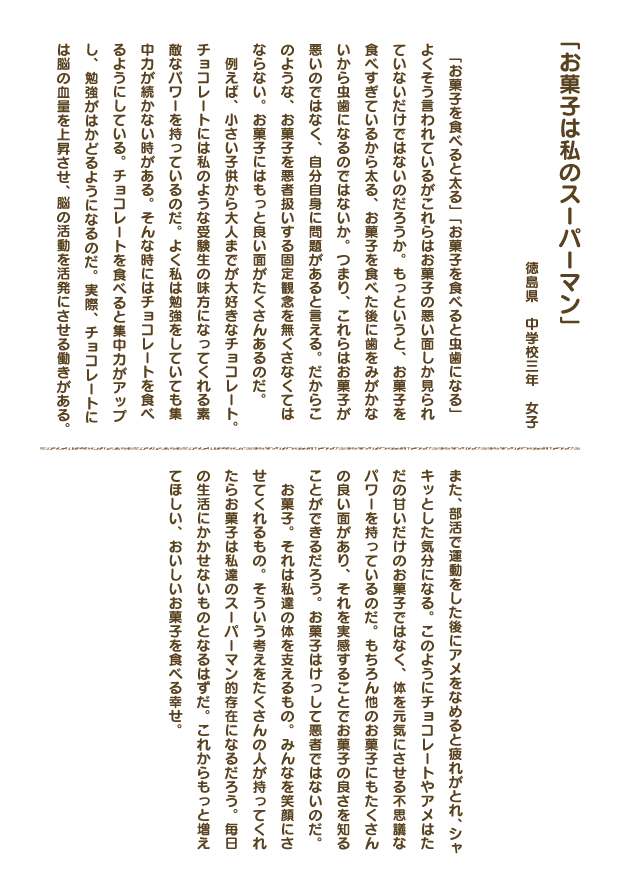 「お菓子は私のスーパーマン」
徳島県　中学校三年　女子
「お菓子を食べると太る」「お菓子を食べると虫歯になる」
よくそう言われているがこれらはお菓子の悪い面しか見られ
ていないだけではないのだろうか。もっというと、お菓子を
食べすぎているから太る、お菓子を食べた後に歯をみがかな
いから虫歯になるのではないか。つまり、これらはお菓子が
悪いのではなく、自分自身に問題があると言える。だからこ
のような、お菓子を悪者扱いする固定観念を無くさなくては
ならない。お菓子にはもっと良い面がたくさんあるのだ。
例えば、小さい子供から大人までが大好きなチョコレート。
チョコレートには私のような受験生の味方になってくれる素
敵なパワーを持っているのだ。よく私は勉強をしていても集
中力が続かない時がある。そんな時にはチョコレートを食べ
るようにしている。チョコレートを食べると集中力がアップ
し、勉強がはかどるようになるのだ。実際、チョコレートに
は脳の血量を上昇させ、脳の活動を活発にさせる働きがある。
また、部活で運動をした後にアメをなめると疲れがとれ、シャ
キッとした気分になる。このようにチョコレートやアメはた
だの甘いだけのお菓子ではなく、体を元気にさせる不思議な
パワーを持っているのだ。もちろん他のお菓子にもたくさん
の良い面があり、それを実感することでお菓子の良さを知る
ことができるだろう。お菓子はけっして悪者ではないのだ。
お菓子。それは私達の体を支えるもの。みんなを笑顔にさ
せてくれるもの。そういう考えをたくさんの人が持ってくれ
たらお菓子は私達のスーパーマン的存在になるだろう。毎日
の生活にかかせないものとなるはずだ。これからもっと増え
てほしい、おいしいお菓子を食べる幸せ。